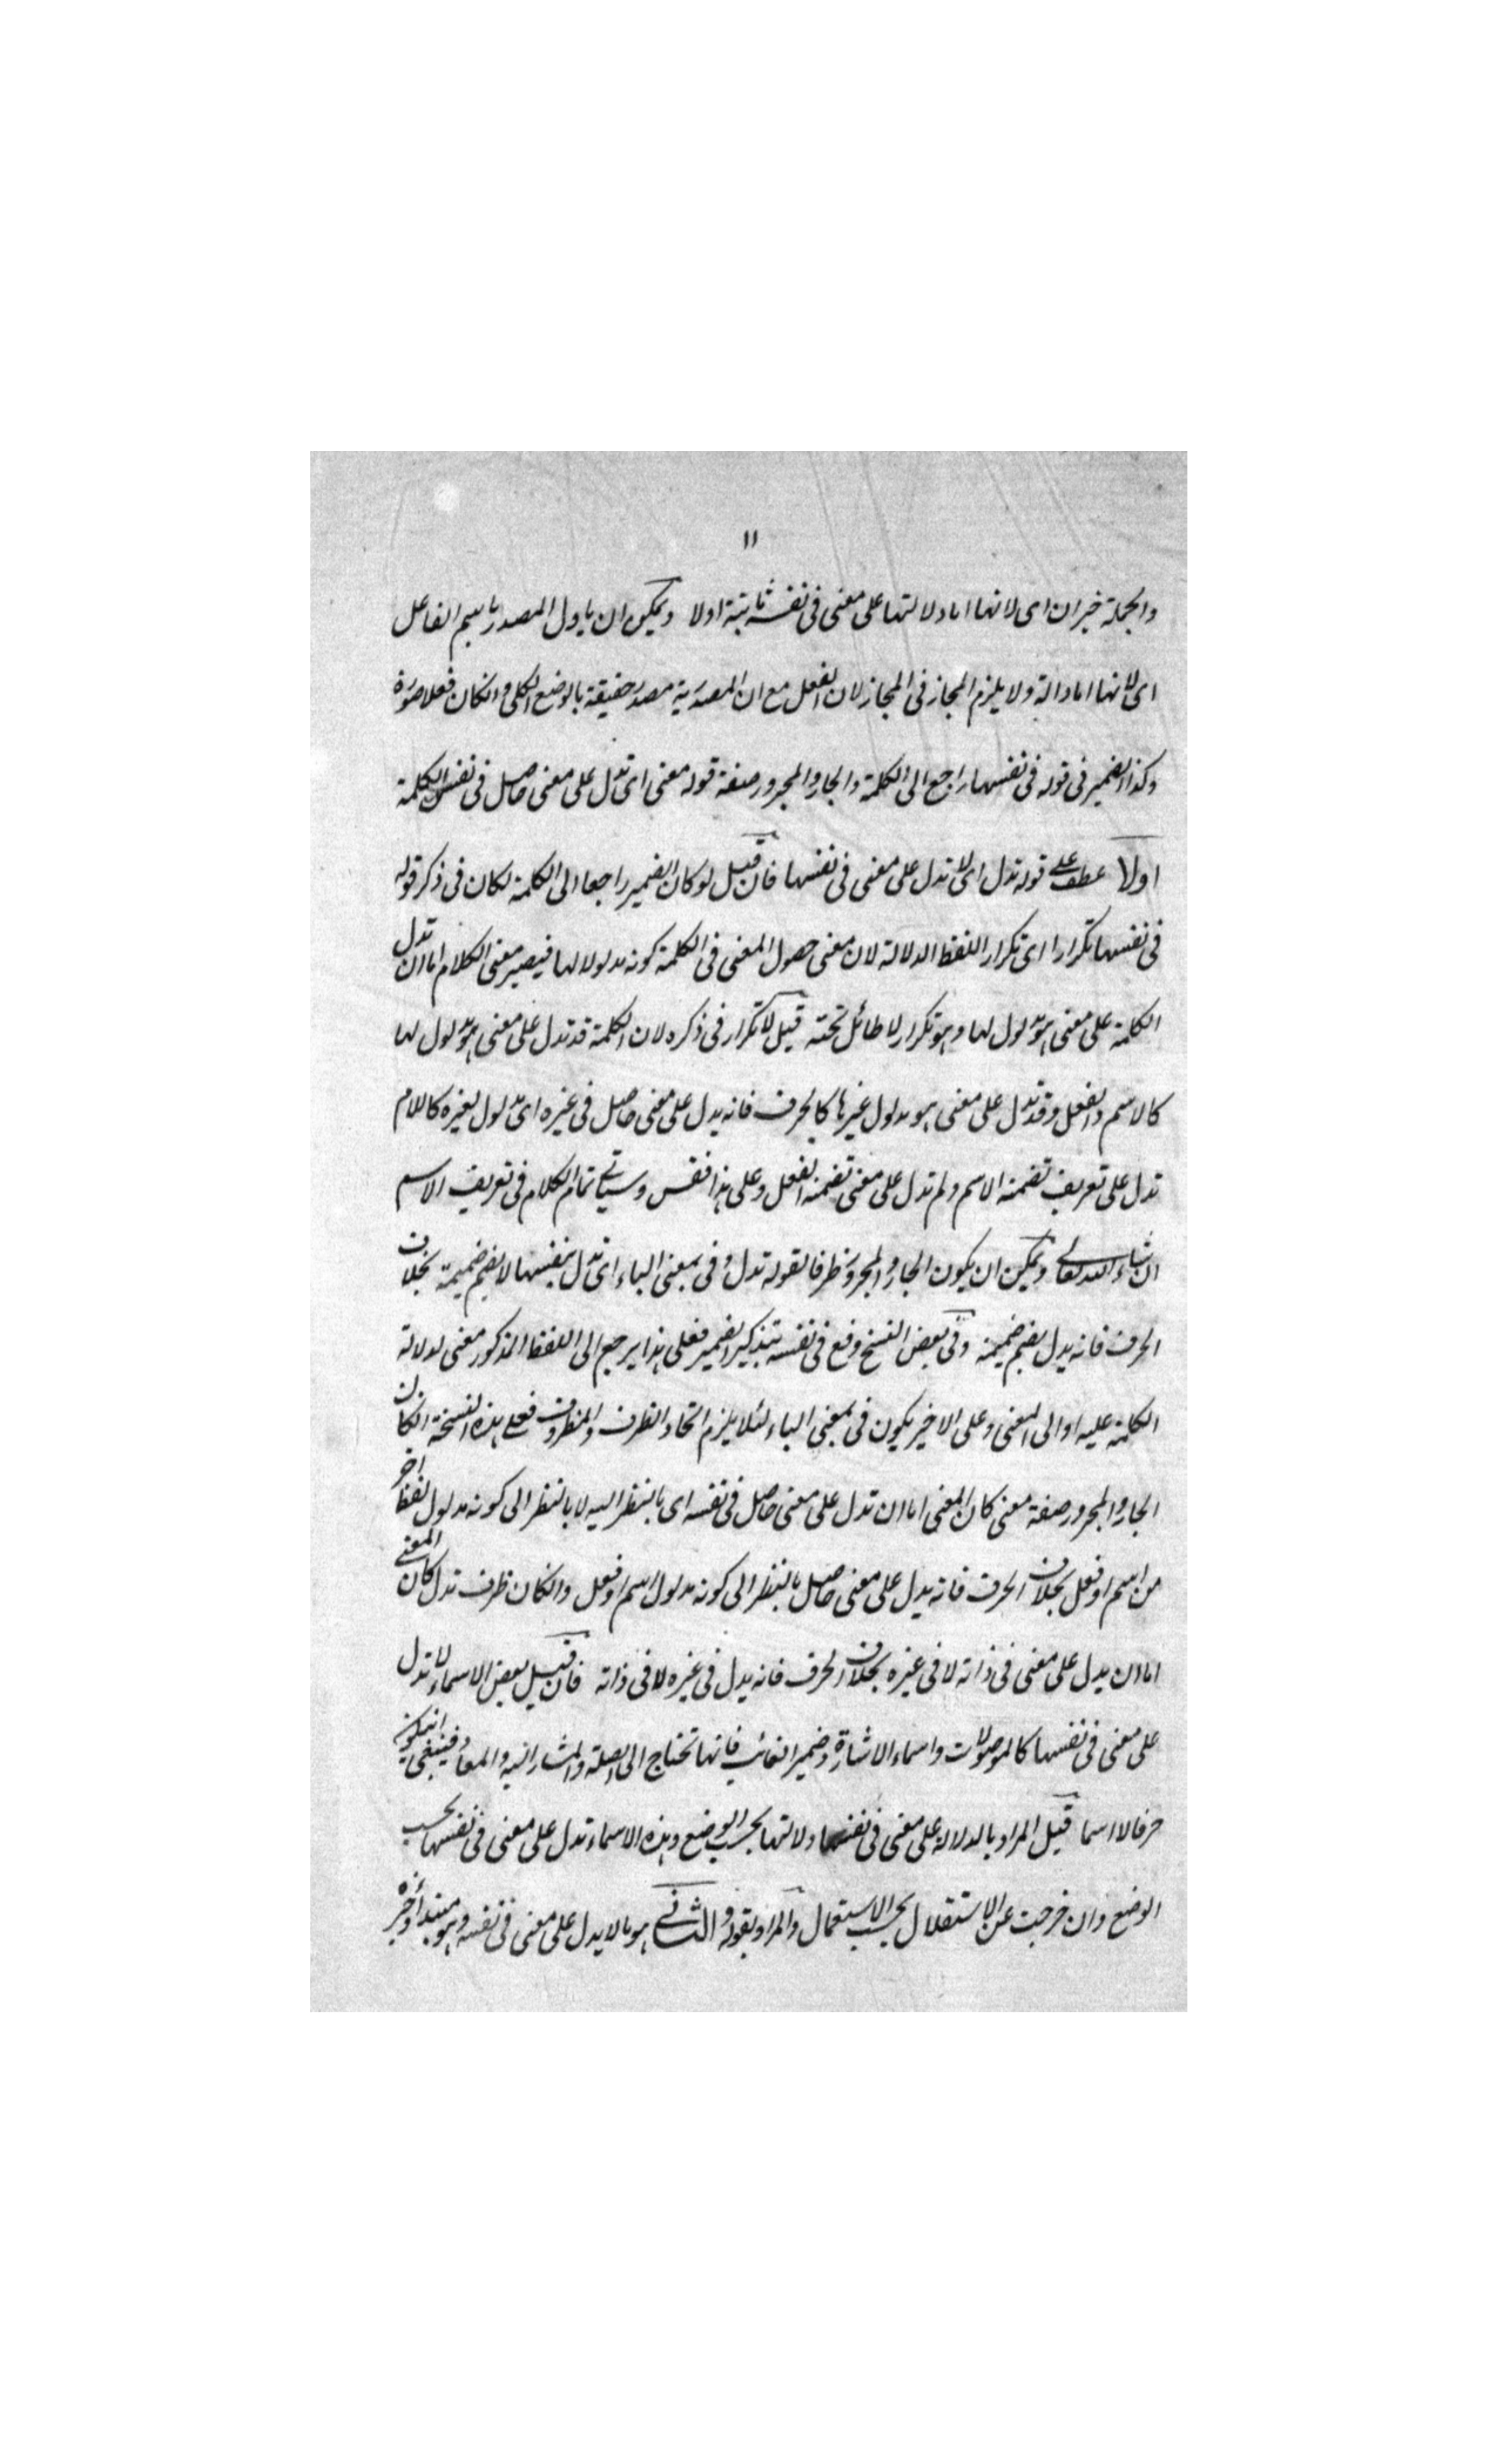 ١١
والجملة خبر ان اى لانها اما دلالتها على معنى فى نفسه ثابتة اولا ويمكن ان ياول المصدر باسم الفاعل
اى لانها اما دالة ولا يلزم المجاز فى المجاز لان الفعل مع ان المصدرية مصدر حقيقة بالوضع الكلى وانكان فعلا صورة
وكذا الضمير فى قوله فى نفسها راجع الى الكلمة والجار والمجرور صفة قوله معنى اى تدل على معنى حاصل فى نفس الكلمة
اولا عطف على قوله تدل اى لا تدل على معنى فى نفسها فان قيل لو كان الضمير راجعا الى الكلمة لكان فى ذكر قوله
فى نفسها تكرارا اى تكرار اللفظ الدلالة لان معنى حصول المعنى فى الكلمة كونه مدلولا لها فيصير معنى الكلام اما ان تدل
الكلمة على معنى هو مدلول لها وهو تكرار لا طائل تحته قيل لا تكرار فى ذكره لان الكلمة قد تدل على معنى هو مدلول لها
كالاسم والفعل وقد تدل على معنى هو مدلول غيرها كالحرف فانه يدل على معنى حاصل فى غيره اى مدلول لغيره كاللام
تدل على تعريف تضمنه الاسم ولم تدل على معنى تضمنه الفعل وعلى هذا فقس وسياتى تمام الكلام فى تعريف الاسم
ان شاء الله تعالى ويمكن ان يكون الجار والمجرور ظرفا لقوله تدل وفى بمعنى الباء اى تدل بنفسها لا بضم ضميمة بخلاف
الحرف فانه يدل بضم ضميمة وفى بعض النسخ وقع فى نفسه بتذكير الضمير فعلى هذا يرجع الى اللفظ المذكور معنى لدلالة
الكلمة عليه او الى المعنى وعلى الاخير يكون فى بمعنى الباء لئلا يلزم اتحاد الظرف والمظروف فعلى هذه النسخة انكان
الجار والمجرور صفة معنى كان المعنى اما ان تدل على معنى حاصل فى نفسه اى بالنظر اليه لا بالنظر الى كونه مدلول لفظ اخر
من اسم او فعل بخلاف الحرف فانه يدل على معنى حاصل بالنظر الى كونه مدلول اسم او فعل وانكان ظرف تدل كان المعنى
اما ان يدل على معنى فى ذاته لا فى غيره بخلاف الحرف فانه يدل فى غيره لا فى ذاته فان قيل بعض الاسماء لا تدل
على معنى فى نفسها كالموصولات واسماء الاشارة وضمير الغائب فانها تحتاج الى الصلة والمشار اليه والمعاد فينبغى ان يكون
حرفا لا اسما قيل المراد بالدلالة على معنى فى نفسها دلالتها بحسب الوضع وهذه الاسماء تدل على معنى فى نفسها بحسب
الوضع وان خرجت عن الاستقلال بحسب الاستعمال والمراد بقوله والثانى هو ما لا يدل على معنى فى نفسه وهو مبتدأ وخبره